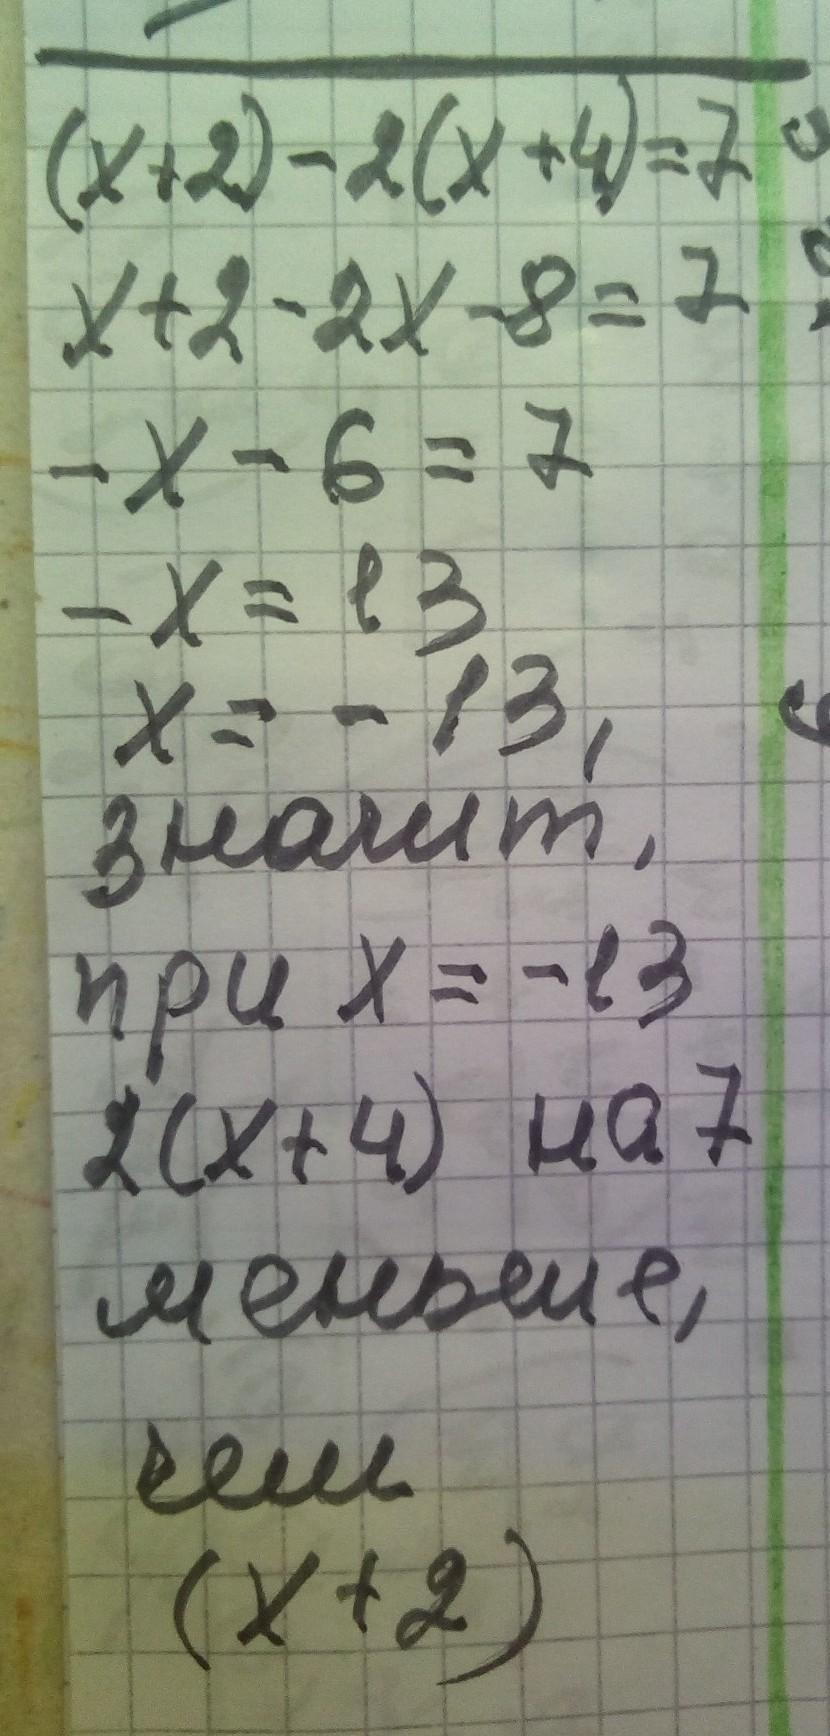 (x+2)-2(x+4)=7
x+2-2x-8=7
-x-6=7
-x=13
x=-13,
значит,
при x=-13
2(x+4) на 7
меньше,
чем
(x+2)